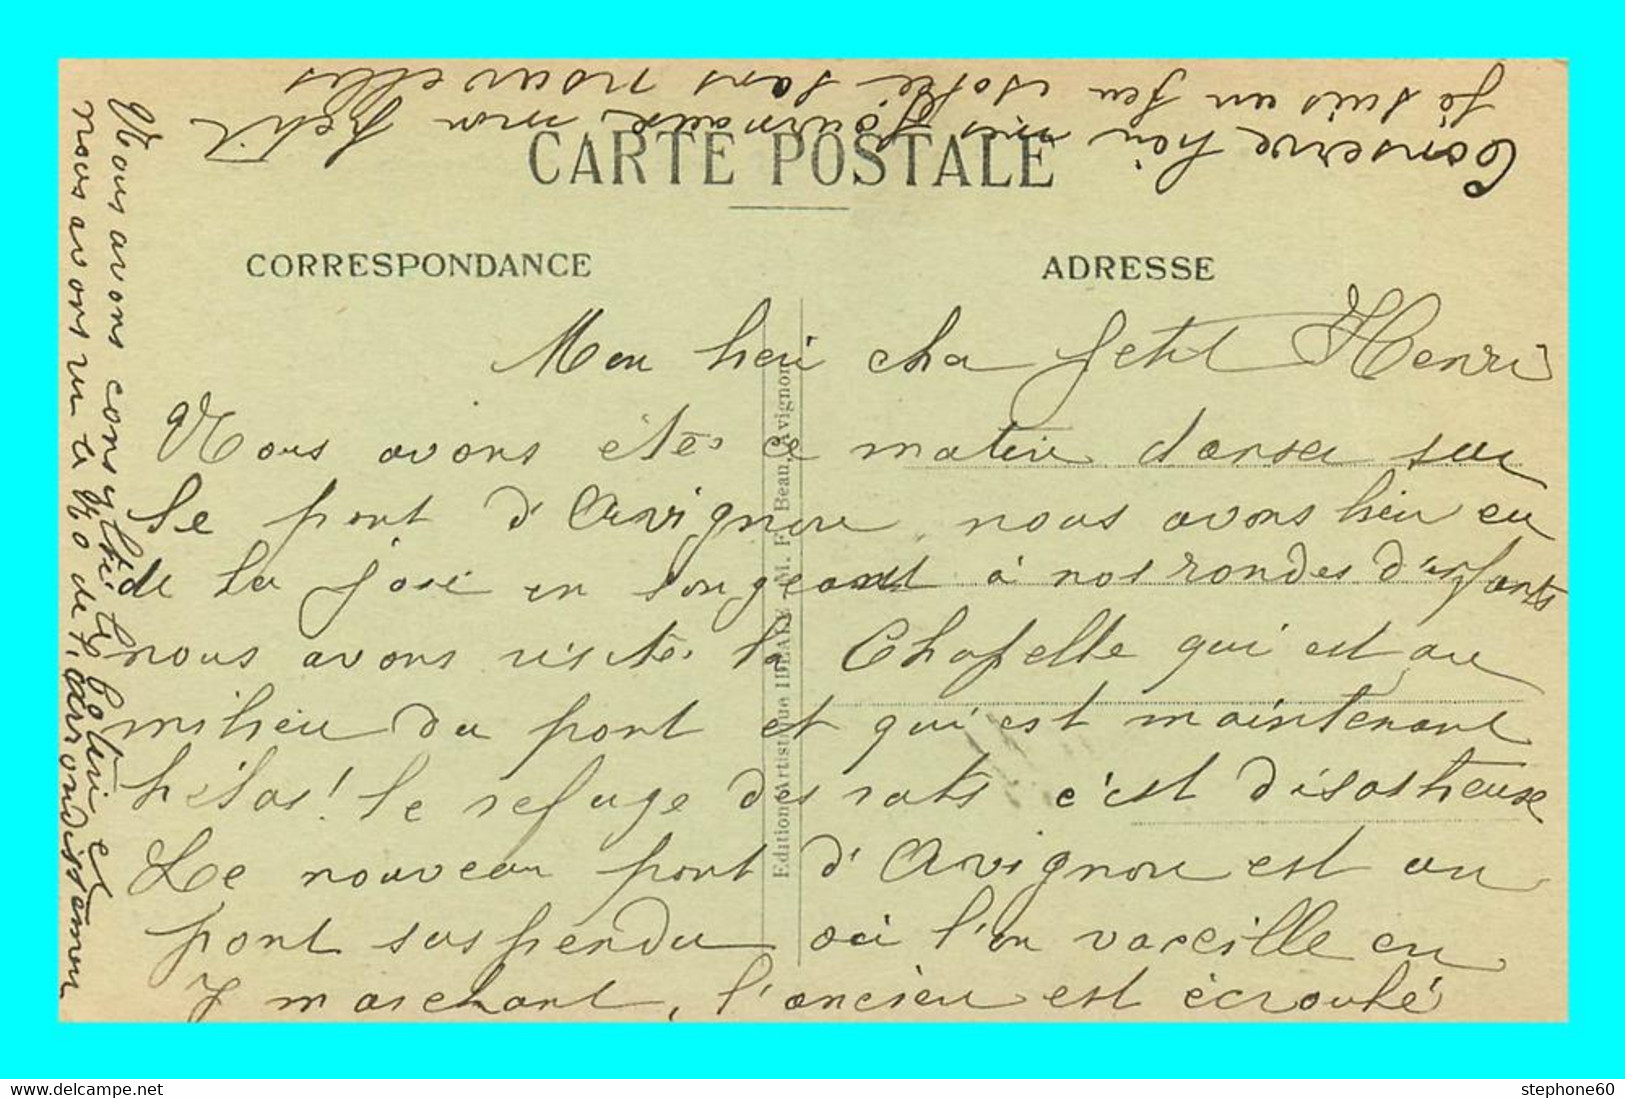 Conserve bien mes journaux mon petit
je suis un peu isolée sans nouvelles
CARTE POSTALE
CORRESPONDANCE
ADRESSE
Mon bien cher petit Henri
Nous avons étés ce matin danser sur
le pont d'Avignon nous avons bien eu
de la joie en songeant à nos rondes d'enfants
nous avons visités la Chapelle qui est au
milieu du pont et qui est maintenant
hélas! le refuge des rats c'est désastreuse
Le nouveau pont d'Avignon est un
pont suspendu où l'on vaceille en
y marchant, l'ancien est écroulé
Nous avons consulté le Bottin et
nous avons vu le No de l'arrondissemen
Edition Artistique IDEALE - M. F. Beau, Avignon
stephone60